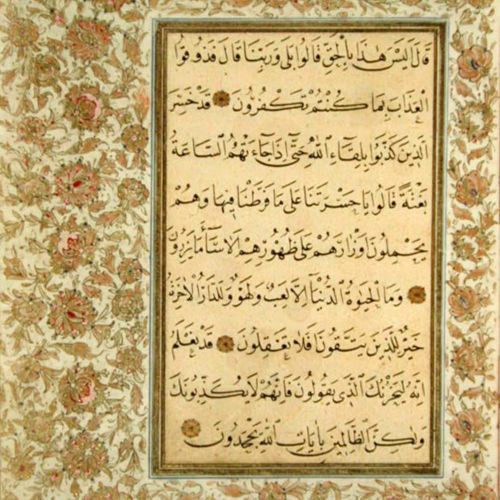 قَالَ اَلَيْسَ هٰذَا بِالْحَقِّ قَالُوا بَلٰى وَرَبِّنَا قَالَ فَذُوقُوا
الْعَذَابَ بِمَا كُنْتُمْ تَكْفُرُونَ قَدْ خَسِرَ
الَّذِينَ كَذَّبُوا بِلِقَٓاءِ اللّٰهِ حَتّٰٓى اِذَا جَٓاءَتْهُمُ السَّاعَةُ
بَغْتَةً قَالُوا يَا حَسْرَتَنَا عَلٰى مَا فَرَّطْنَا فِيهَا وَهُمْ
يَحْمِلُونَ اَوْزَارَهُمْ عَلٰى ظُهُورِهِمْ اَلَا سَٓاءَ مَا يَزِرُونَ
وَمَا الْحَيٰوةُ الدُّنْيَٓا اِلَّا لَعِبٌ وَلَهْوٌ وَلَلدَّارُ الْاٰخِرَةُ
خَيْرٌ لِلَّذِينَ يَتَّقُونَ اَفَلَا يَعْقِلُونَ قَدْ نَعْلَمُ
اِنَّهُ لَيَحْزُنُكَ الَّذِي يَقُولُونَ فَاِنَّهُمْ لَا يُكَذِّبُونَكَ
وَلٰكِنَّ الظَّالِمِينَ بِاٰيَاتِ اللّٰهِ يَجْحَدُونَ